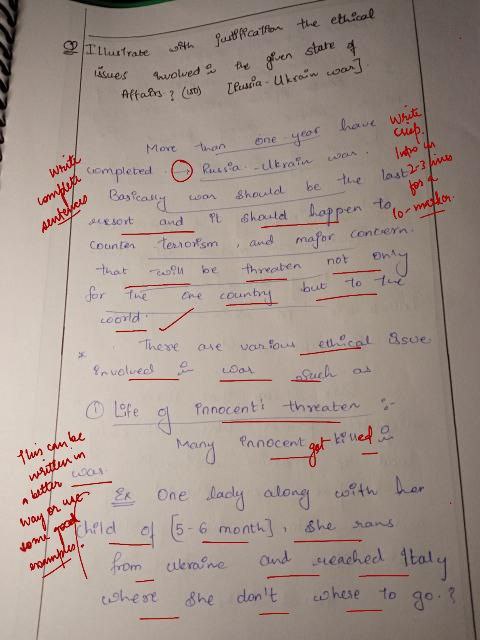 Q Illustrate with justification the ethical
issues involved in the given state of
Affairs? (150) [Russia-Ukrain war].
More than one year have
completed → Russia-Ukrain war.
Basically war should be the last
resort and it should happen to
counter terrorism, and major concern.
that will be threaten not only
for the one country but to the
world.
* There are various ethical issue
involved in war such as
① Life of innocent's threaten :-
Many innocent got killed in
war
Ex One lady along with her
child of [5-6 month], she rans
from Ukraine and reached Italy
where she don't where to go.?
Write
complete
sentences
Write
crisp.
Intro in
2-3 lines
for a
10-marker.
This can be
written in
a better
way or use
some good
examples.